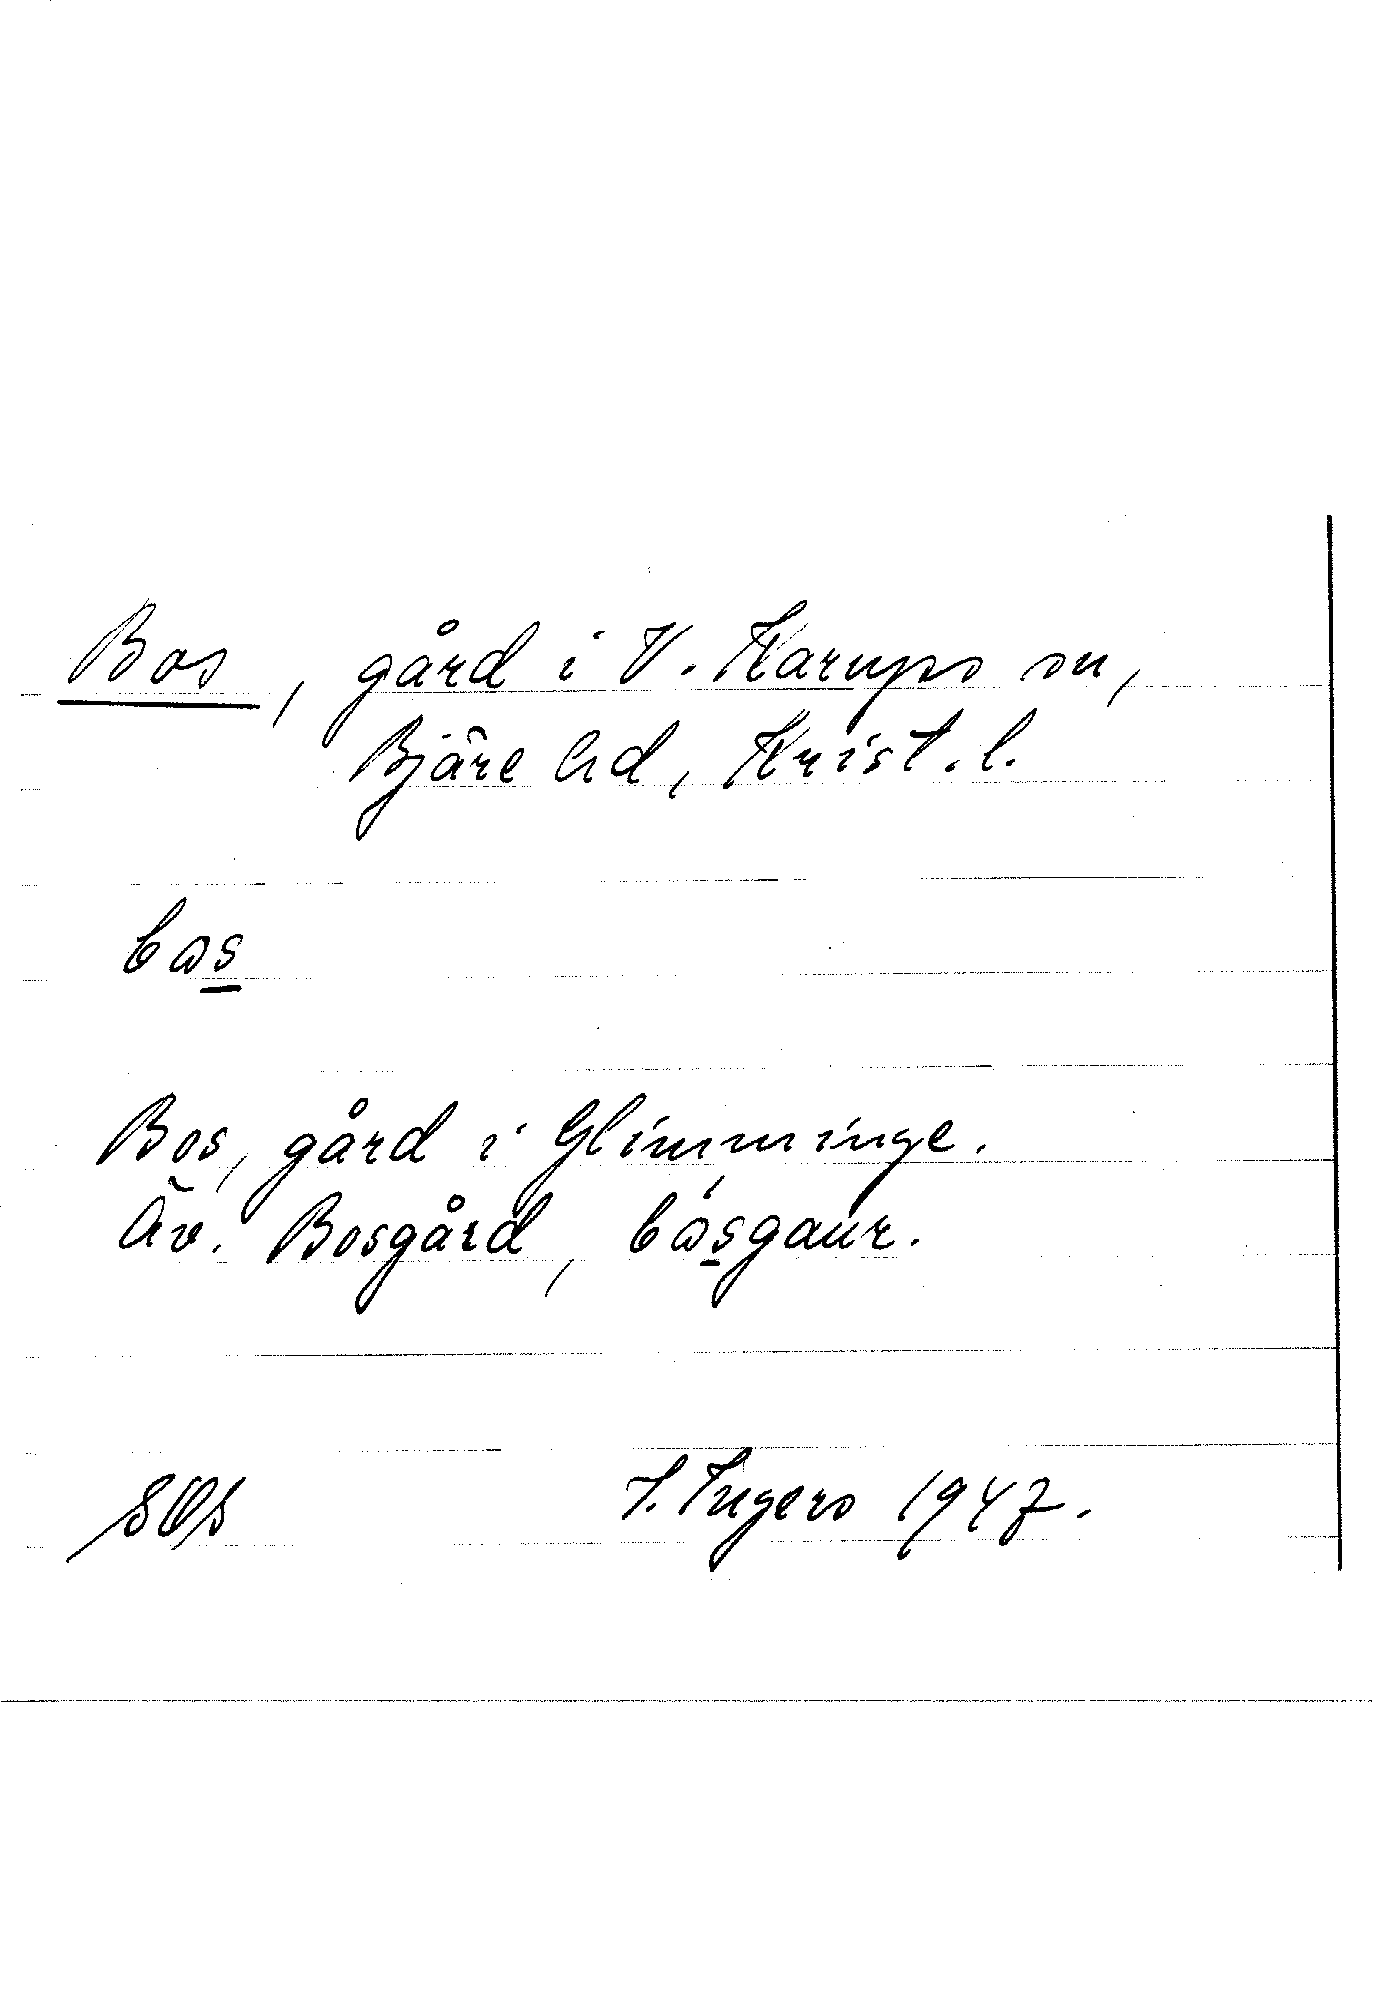 Bos, gård i V. Karups sn,
Bjäre hd, Krist. l.
bɷs
Bos, gård i Glimminge.
Äv. Bosgård, bɷ́sgaur.
I. Ingers 1947.